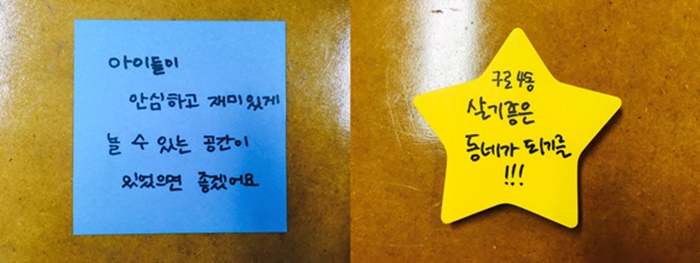 아이들이
안심하고 재미있게
놀 수 있는 공간이
있었으면 좋겠어요
구로4동
살기좋은
동네가 되기를
!!!